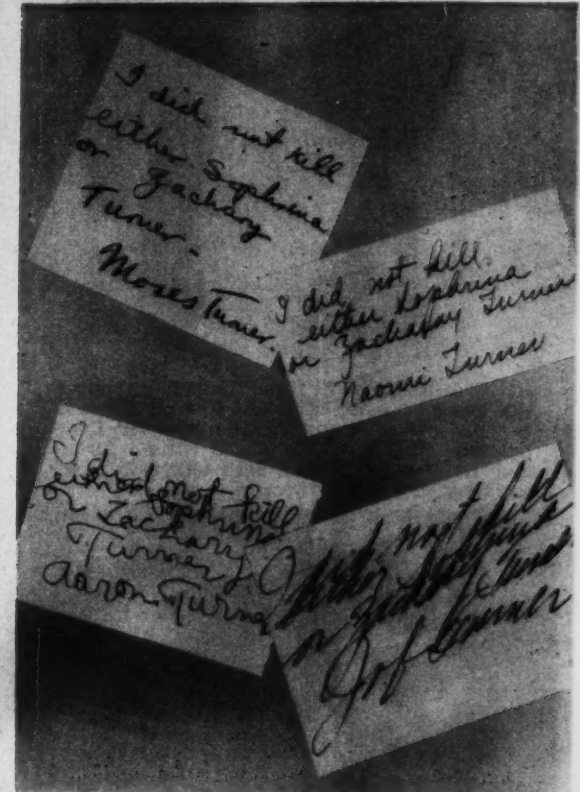 I did not kill
either Sophrina
or Zachary
Turner.
Moses Turner.
I did not kill
either Sophrina
or Zachary Turner
Naomi Turner
I did not kill
either Sophrina
or Zachary
Turner
Aaron Turner
I did not kill
either Sophrina
or Zachary